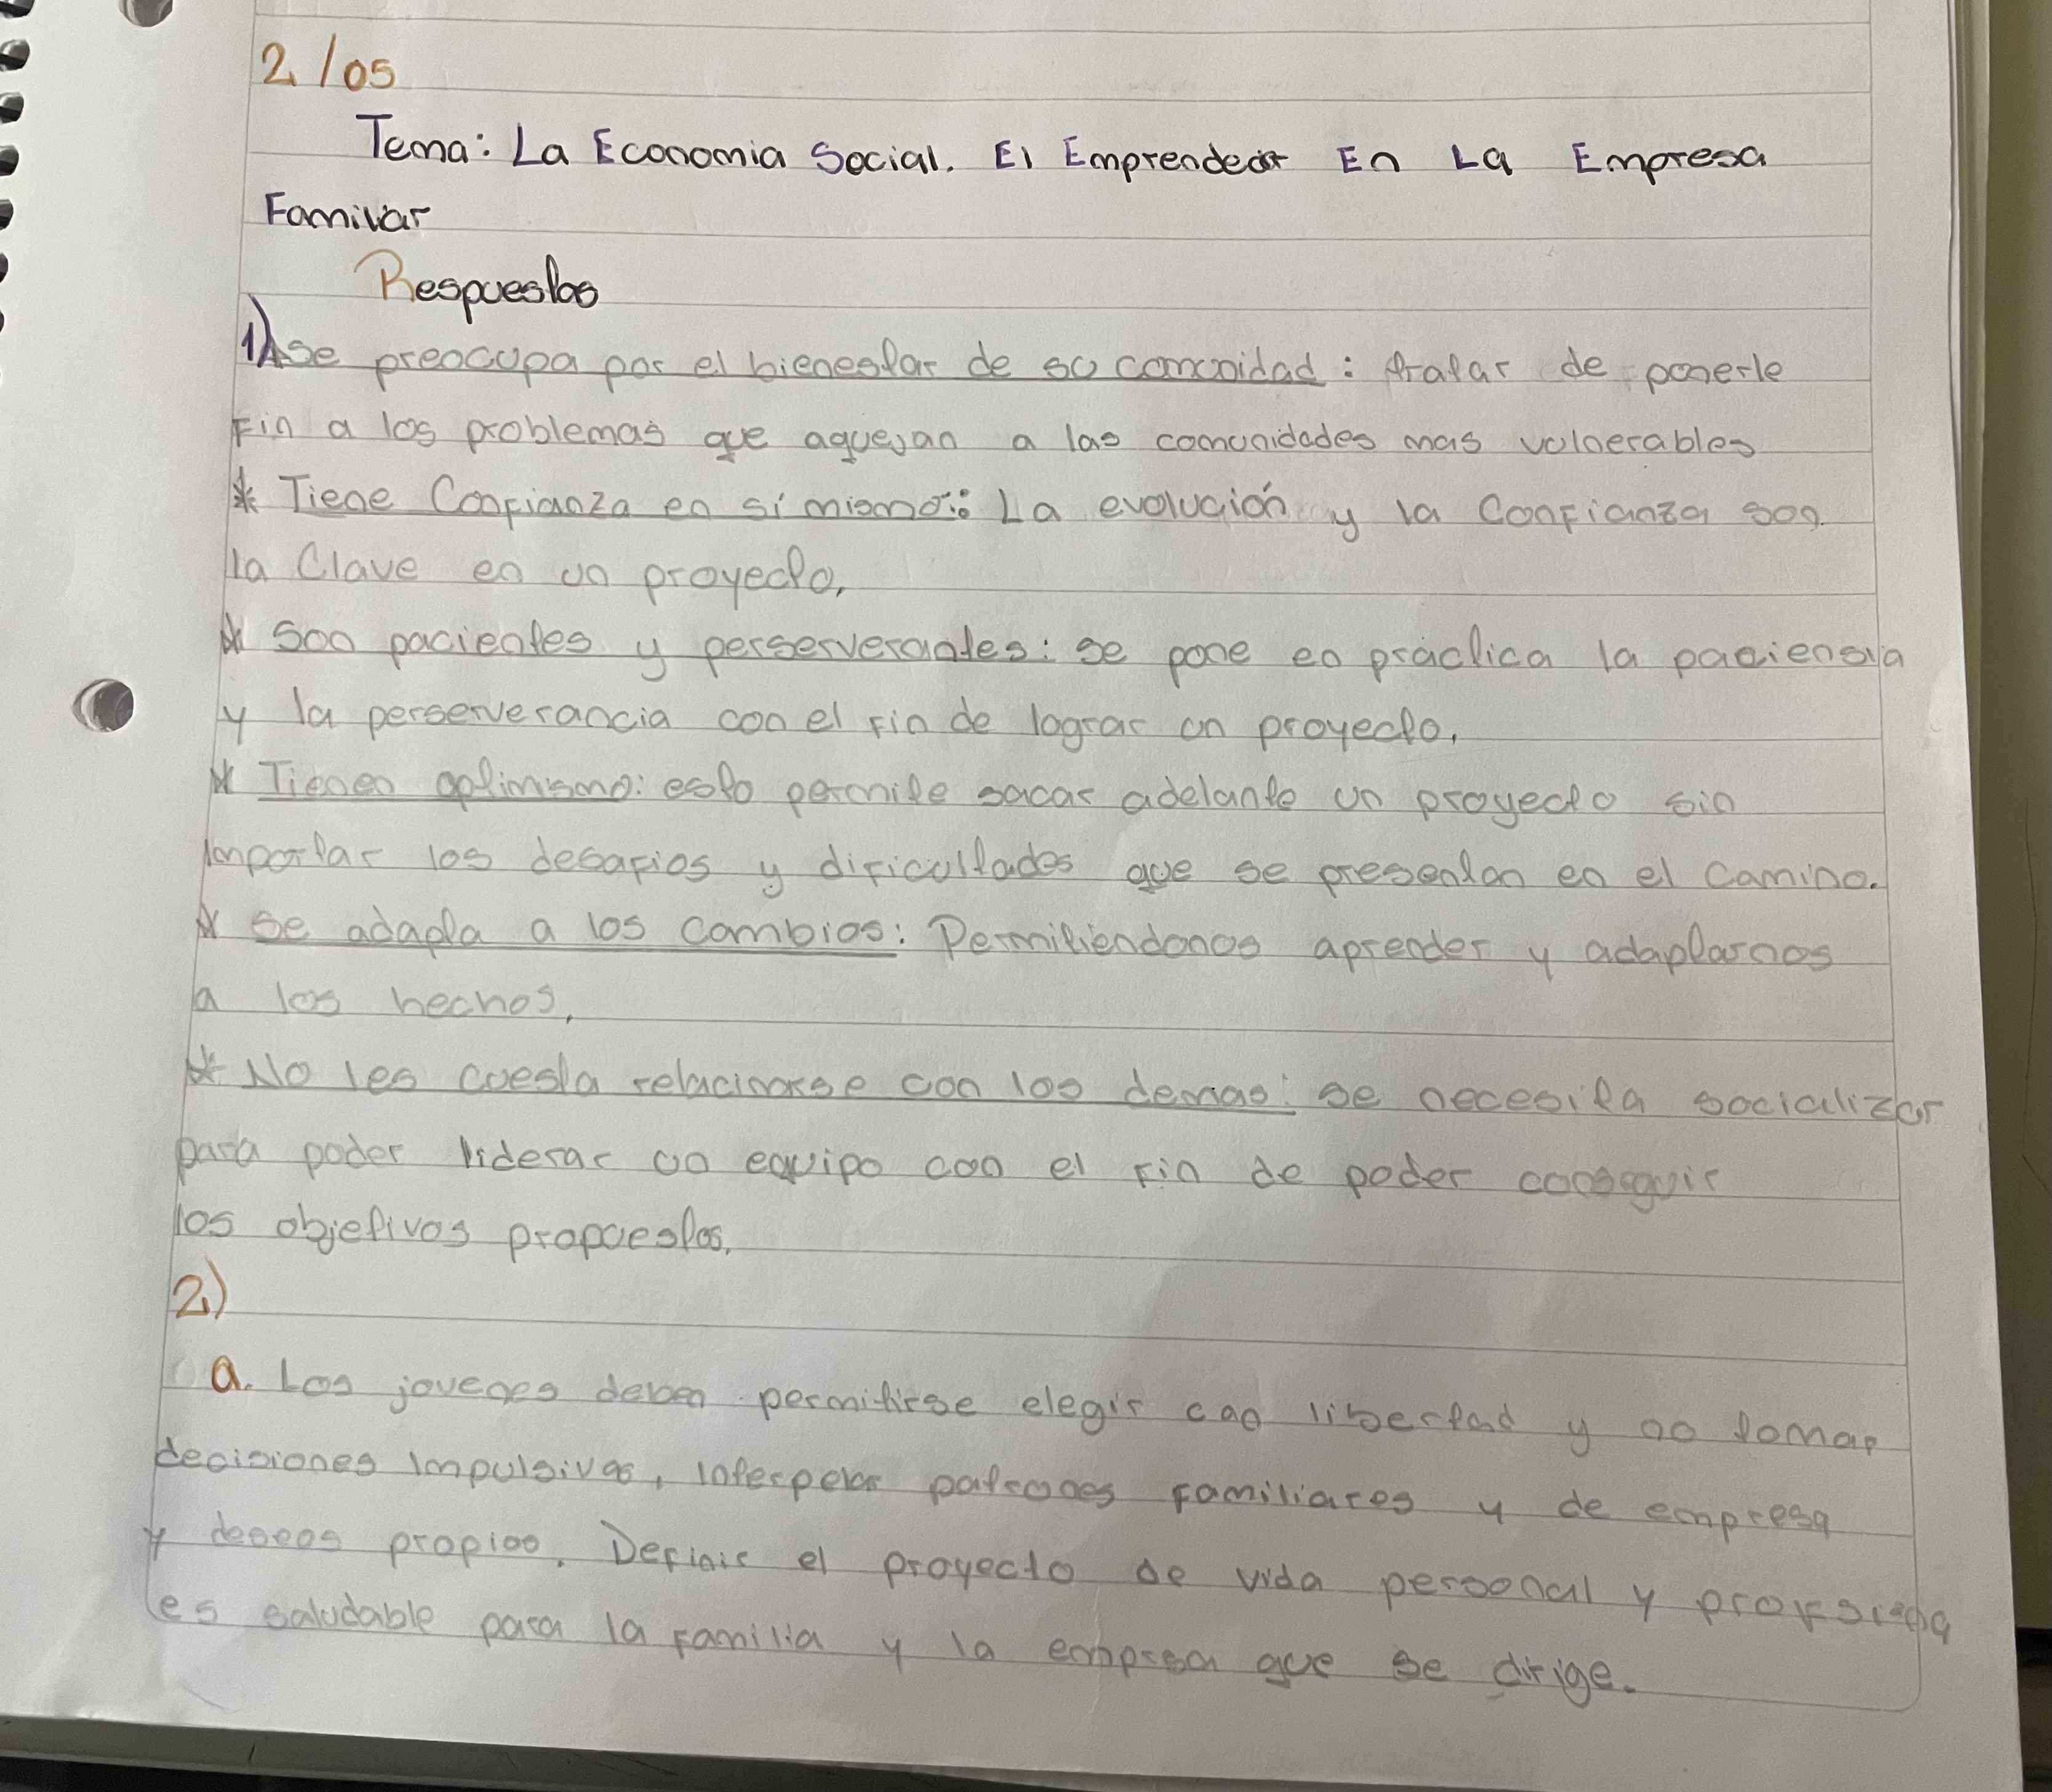 2/05
Tema: La Economia Social. El Emprendedor En La Empresa
Familiar
Respuestas
1)*se preocupa por el bienestar de su comunidad: tratar de ponerle
Fin a los problemas que aquejan a las comunidades mas vulnerables
* Tiene Confianza en sí mismo: La evolución y la Confianza son
la Clave en un proyecto,
* Son pacientes y perserverantes: se pone en práctica la paciensia
y la perserverancia con el fin de lograr un proyecto,
* Tienen optimismo: esto permite sacar adelante un proyecto sin
importar los desafios y dificultades que se presentan en el Camino.
* se adapta a los Cambios: Permitiendonos aprender y adaptarnos
a los hechos,
* No les cuesta relacinorse con los demas: se necesita socializar
para poder liderar un equipo con el fin de poder conseguir
los objetivos propuestos.
2)
a. Los jovenes deben permitirse elegir con libertad y no tomar
decisiones impulsivas, interpelar patrones familiares y de empresa
y deseos propios. Definir el proyecto de vida personal y
es saludable para la familia y la empresa que se dirige.